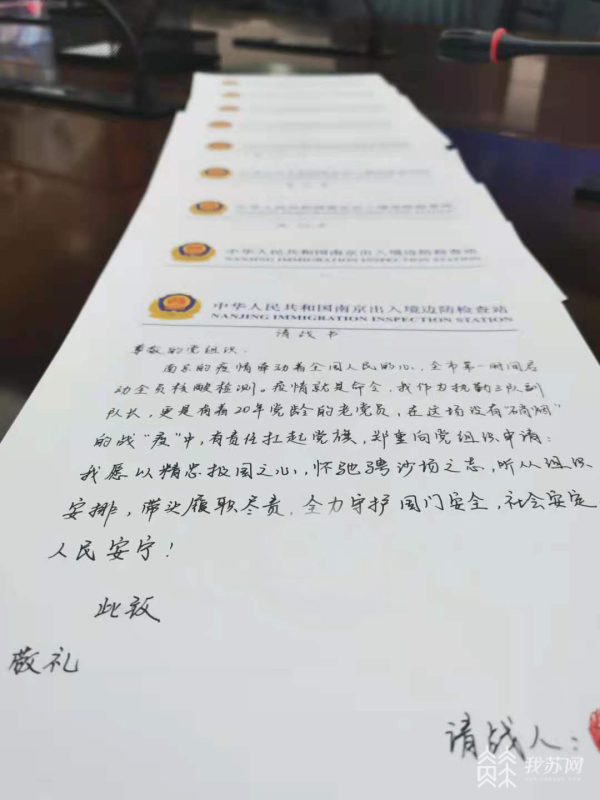 中华人民共和国南京出入境边防检查站
NANJING IMMIGRATION INSPECTION STATION
中华人民共和国南京出入境边防检查站
NANJING IMMIGRATION INSPECTION STATION
请战书
尊敬的党组织：
南京的疫情牵动着全国人民的心，全市第一时间启
动全员核酸检测。疫情就是命令，我作为执勤三队副
队长，更是有着20年党龄的老党员，在这场没有“硝烟”
的战“疫”中，有责任扛起党旗，郑重向党组织申请：
我愿以精忠报国之心，怀驰骋沙场之志，听从组织
安排，带头履职尽责，全力守护国门安全，社会安定，
人民安宁！
此致
敬礼
请战人：
我苏网